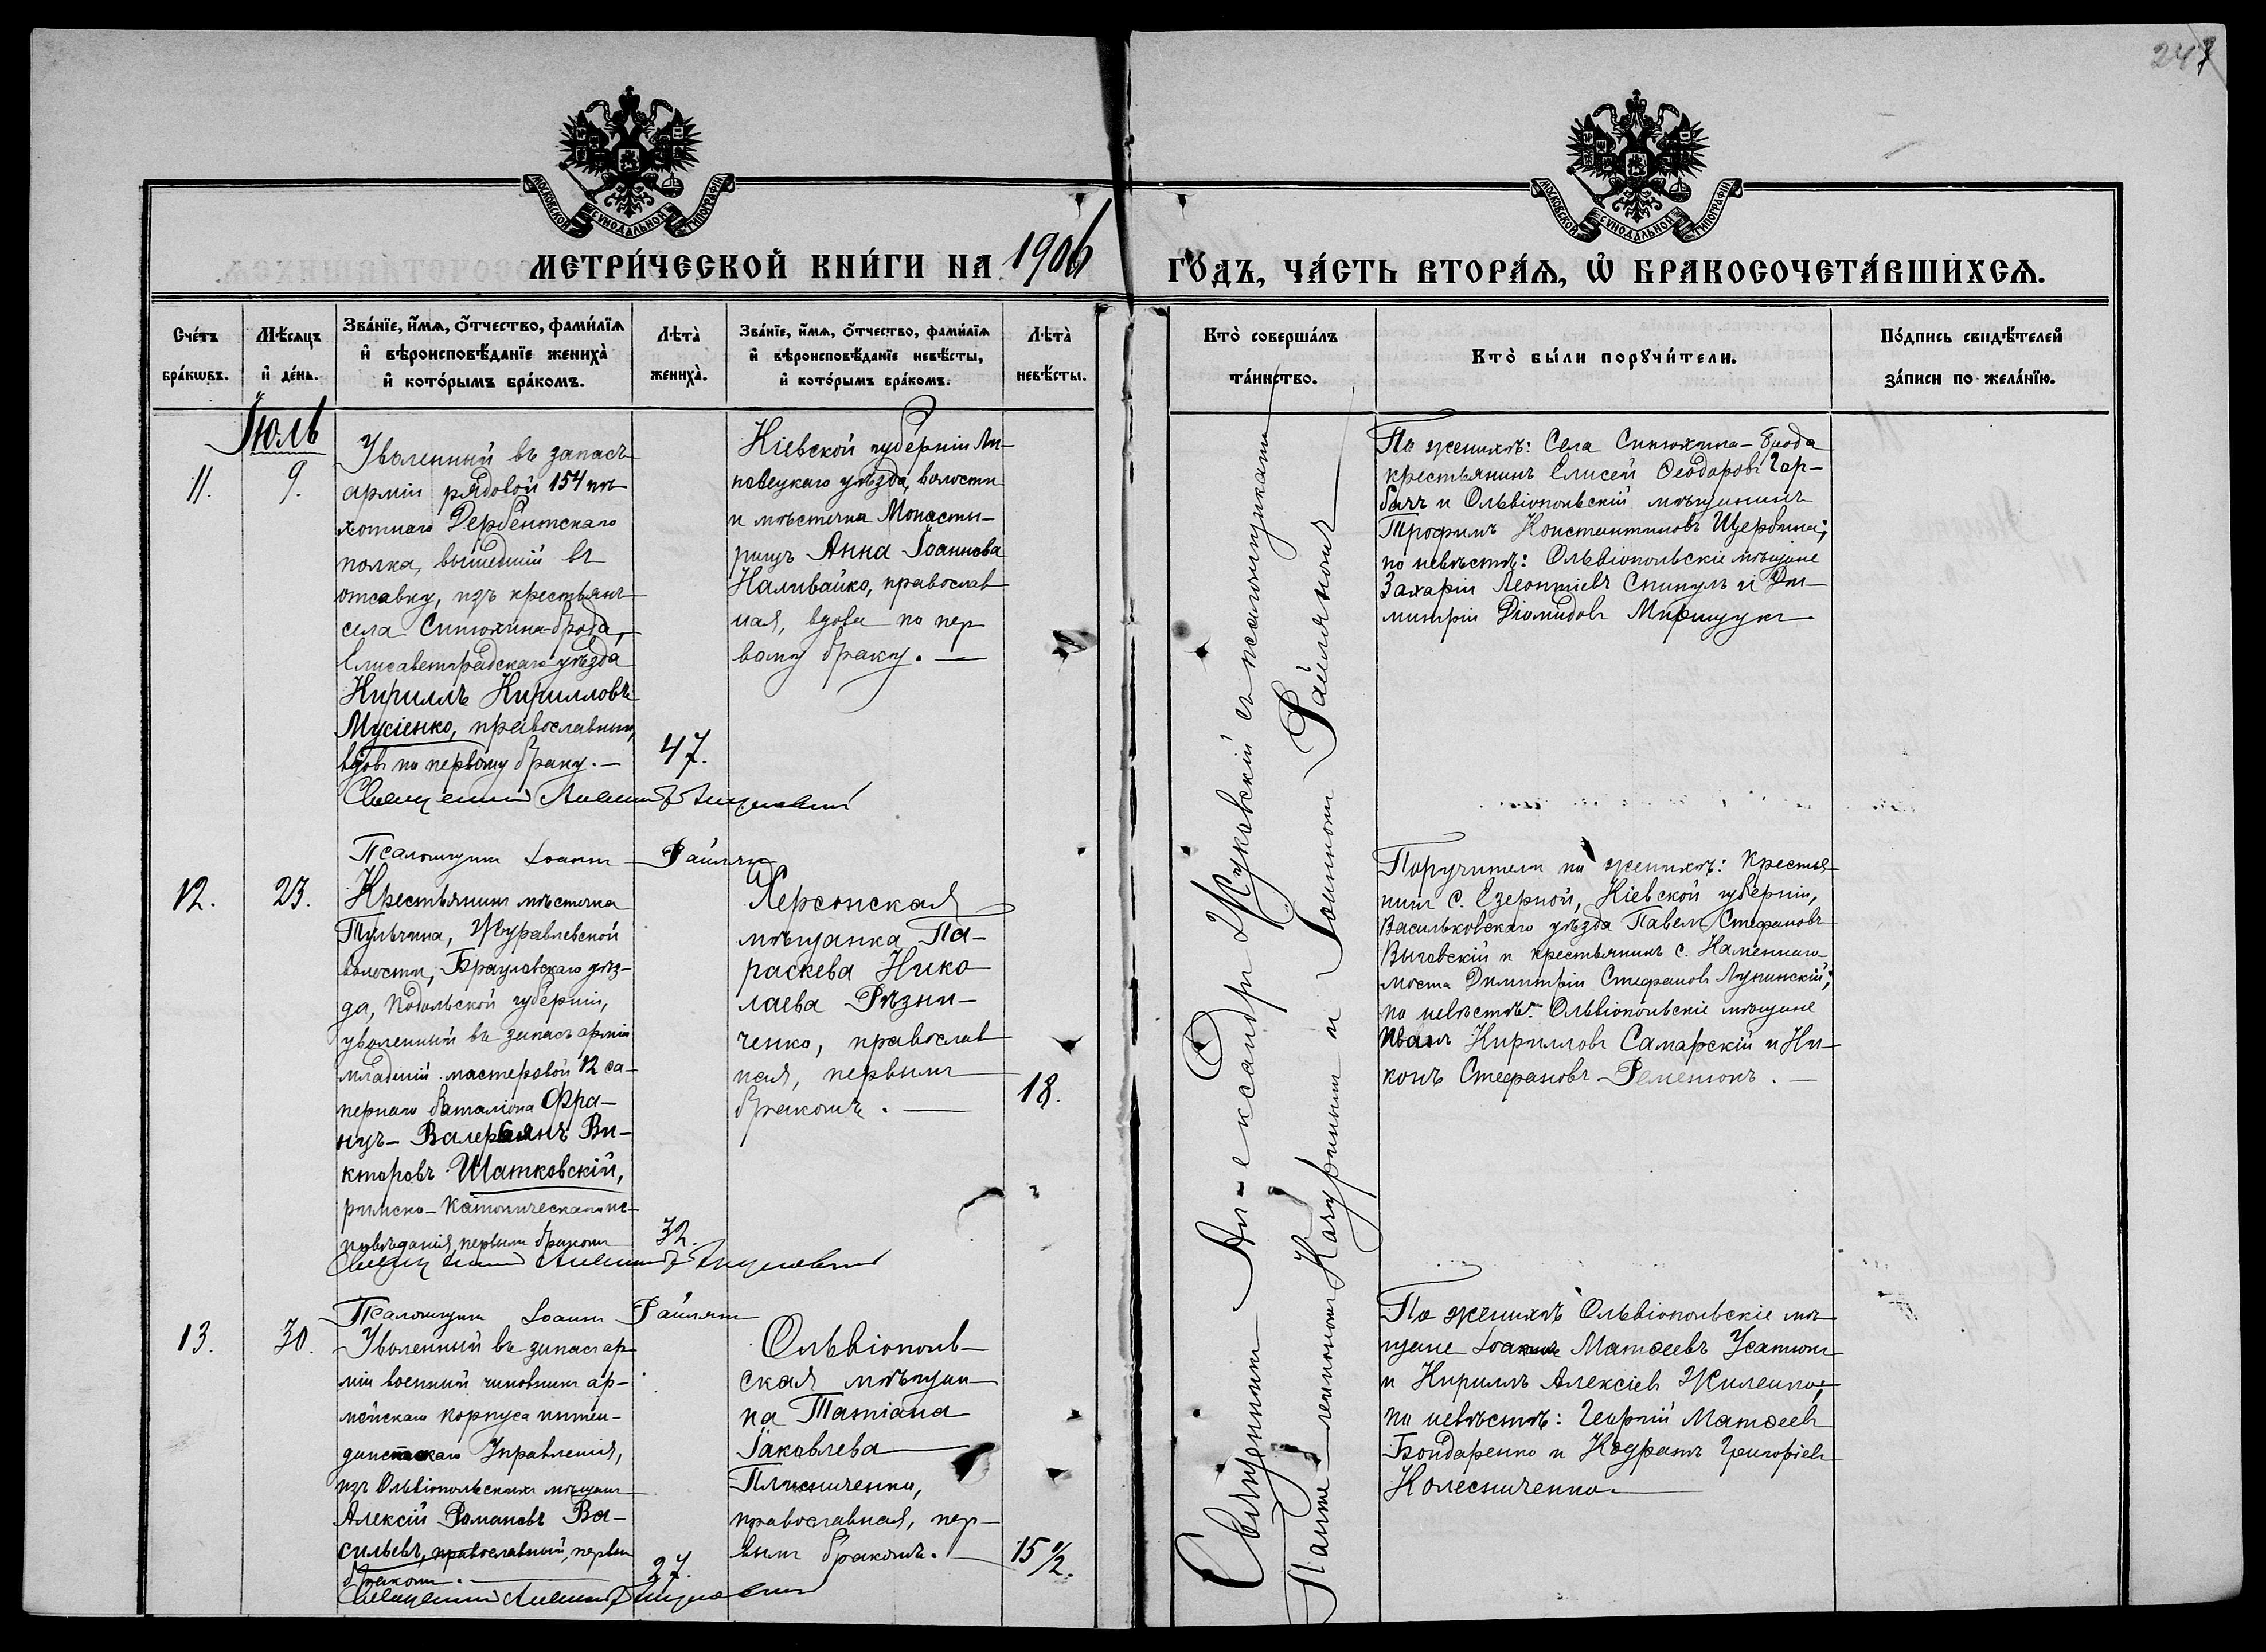 247
МОСКОВСКОЙ СѴНОДАЛЬНОЙ ТИПОГРАФІИ
МОСКОВСКОЙ СѴНОДАЛЬНОЙ ТИПОГРАФІИ
МЕТРИ́ЧЕСКОЙ КНИ́ГИ НА 1906 ГО́ДЪ, ЧА́СТЬ ВТОРА́Я, Ѡ БРАКОСОЧЕТА́ВШИХСЯ.
Сче́тъ бра́кѡвъ.
Мѣ́сяцъ и де́нь.
Зва́нїе, и́мя, о́тчество, фами́лїя
и вѣроисповѣ́данїе жениха̀
и кото́рымъ бра́комъ.
Лѣта̀ жениха̀.
Зва́нїе, и́мя, о́тчество, фами́лїя
и вѣроисповѣ́данїе невѣ́сты,
и кото́рымъ бра́комъ.
Лѣта̀ невѣ́сты.
Кто̀ соверша́лъ та́инство.
Кто̀ бы́ли порꙋчи́тели.
По́дпись свидѣ́телей
за́писи по жела́нїю.
Іюль
11.
9.
Уволенный въ запасъ
арміи рядовой 154 пѣ-
хотнаго Дербентскаго
полка, вышедшій въ
отставку, изъ крестьянъ
села Синюхина-брода,
Елисаветградскаго уѣзда
Кириллъ Кирилловъ
Мусіенко, православный,
вдовъ по первому браку. —
47.
Священникъ
Псаломщикъ Іоаннъ Райлянъ
Кіевской губерніи Ли-
повецкаго уѣзда, волости
и мѣстечка Монасты-
рищъ Анна Іоаннова
Наливайко, православ
ная, вдова по пер
вому браку. —
По женихѣ: Села Синюхина-брода
крестьянинъ Елисей Ѳеодоровъ Гор-
бачъ и Ольвіопольскій мѣщанинъ
Трофимъ Константиновъ Щербина;
по невѣстѣ: Ольвіопольскіе мѣщане
Захарій Леонтіевъ и Ди-
митрій Діомидовъ
12.
23.
Крестьянинъ мѣстечка
Тульчина, Журавлевской
волости, Брацлавскаго уѣз-
да, Подольской губерніи,
уволенный въ запасъ арміи
младшій мастеровой 12 са-
пернаго баталіона Фра-
нцъ-Валерьянъ Ви-
кторовъ Шатковскій,
римско-католическаго ис-
повѣданія, первымъ бракомъ
32.
Священникъ
Псаломщикъ Іоаннъ Райлянъ
Херсонская
мѣщанка Па-
раскева Нико
лаева Рѣзни-
ченко, православ
ная, первымъ
бракомъ. —
18.
Поручители по женихѣ: Крестья
нинъ с. Езерной, Кіевской губерніи,
Васильковскаго уѣзда Павелъ Стефановъ
Выговскій и крестьянинъ с. Каменнаго-
моста Димитрій Стефановъ Лупинскій;
по невѣстѣ: Ольвіопольскіе мѣщане
Иванъ Кирилловъ Самарскій и Ни-
конъ Стефановъ Ременюкъ. —
13.
30.
Уволенный въ запасъ ар-
міи военный чиновникъ ар-
мейскаго корпуса интен-
дантскаго Управленія,
изъ Ольвіопольскихъ мѣщанъ
Алексій Романовъ Ва-
сильевъ, православный, первым
бракомъ. —
27.
Священникъ
Ольвіополь-
ская мѣщан
ка Татіана
Іаковлева
Плисниченко,
православная, пер-
вымъ бракомъ. —
15 1/2.
По женихѣ Ольвіопольскіе мѣ
щане Іоаннъ Матѳеевъ Усатюкъ
и Кириллъ Алексіевъ Жиленко;
по невѣстѣ: Георгій Матѳеевъ
Бондаренко и Кодратъ Григоріевъ
Колесниченко. —
Священникъ Александръ Жуковскій съ псаломщиками
Пантелеимономъ Качуринымъ и Іоанномъ Райляномъ